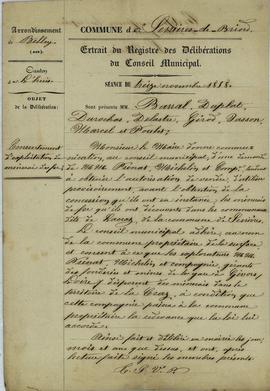 Arrondissement
de Belley
(Ain)
Canton
OBJET
de la Délibération:
Consentement
d'exploitation de
minerai de fer
COMMUNE d
Extrait du Registre des Délibérations
du Conseil Municipal.
SÉANCE DU treize novembre 1858.
Sont présents MM. Barral, Duplat,
Durochat, Delastre, Girod, Dasson,
Marcel et Poulet.
Monsieur le Maire donne commu-
nication, au conseil municipal, d'une demande
de MM. Michelin et Comp. tendant
à obtenir l'autorisation de vendre
provisoirement, avant l'obtention de la
concession qu'ils ont en instance, les minerais
de fer qu'ils ont découverts dans les communaux
de la commune de
Le conseil municipal au nom
de la commune propriétaire de la surface
et consent à ce que les exploitants MM.
Michelin et compagnie, gérants
des fonderies et mines de la gau à Givors,
à disposer des minerais dans le
territoire de à condition que
cette compagnie paiera à la commune
propriétaire la redevance que la loi lui
accorde.
Ainsi fait et délibéré en mairie les jour,
mois et an que dessus et ont, après
lecture faite signé les membres présents